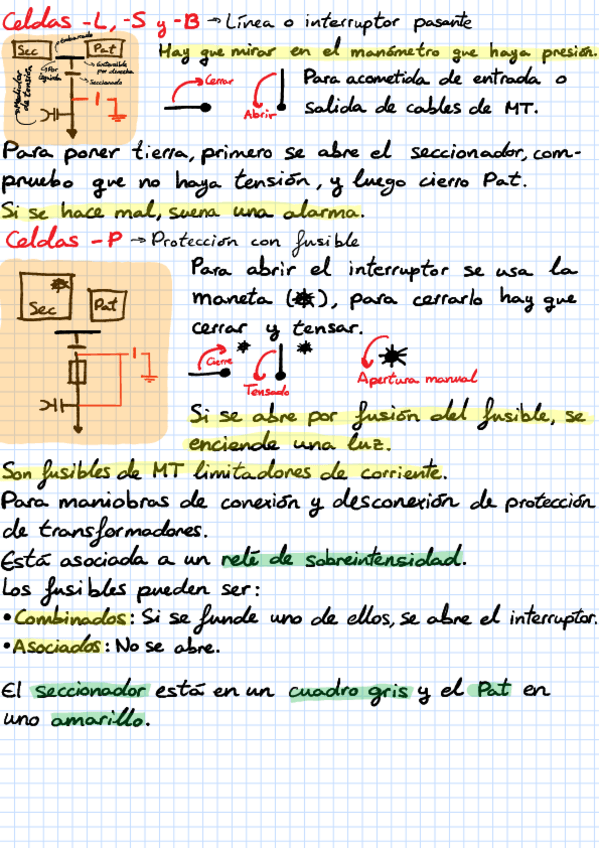 Celdas -L, -S y -B → Línea o interruptor pasante
Sec
Embarrado
Pat
Seccionando
Medidor de tensión
Hay que mirar en el manómetro que haya presión.
Cerrar
Abrir
Para acometida de entrada o
salida de cables de MT.
Para poner tierra, primero se abre el seccionador, com-
pruebo que no haya tensión, y luego cierro Pat.
Si se hace mal, suena una alarma.
Celdas -P → Protección con fusible
Sec
Pat
Para abrir el interruptor se usa la
maneta ( ), para cerrarlo hay que
cerrar y tensar.
Cierre
Tensado
Apertura manual
Si se abre por fusión del fusible, se
enciende una luz.
Son fusibles de MT limitadores de corriente.
Para maniobras de conexión y desconexión de protección
de transformadores.
Está asociada a un relé de sobreintensidad.
Los fusibles pueden ser:
• Combinados: Si se funde uno de ellos, se abre el interruptor.
• Asociados: No se abre.
El seccionador está en un cuadro gris y el Pat en
uno amarillo.